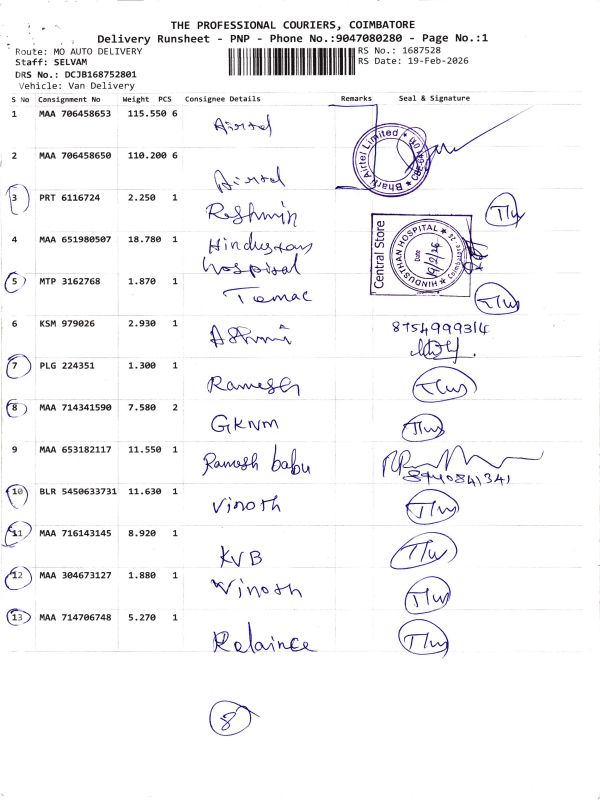 THE PROFESSIONAL COURIERS, COIMBATORE
Delivery Runsheet - PNP - Phone No.:9047080280 - Page No.:1
Route: MO AUTO DELIVERY RS No.: 1687528
Staff: SELVAM RS Date: 19-Feb-2026
DRS No.: DCJB168752801
Vehicle: Van Delivery
S No Consignment No Weight PCS Consignee Details Remarks Seal & Signature
1 MAA 706458653 115.550 6 Airtel
Bharti Airtel Limited
2 MAA 706458650 110.200 6 Airtel
3 PRT 6116724 2.250 1 Reshmin T/w
4 MAA 651980507 18.780 1 Hindustan hospital
Central Store
HINDUSTHAN HOSPITAL
Date
19/2/26
5 MTP 3162768 1.870 1 Tomac T/w
6 KSM 979026 2.930 1 Ashmi 8754999314
7 PLG 224351 1.300 1 Ramesh T/w
8 MAA 714341590 7.580 2 GKNM T/w
9 MAA 653182117 11.550 1 Ramesh babu 8940841341
10 BLR 5450633731 11.630 1 Vinoth T/w
11 MAA 716143145 8.920 1 KVB T/w
12 MAA 304673127 1.880 1 Vinoth T/w
13 MAA 714706748 5.270 1 Relaince T/w
8